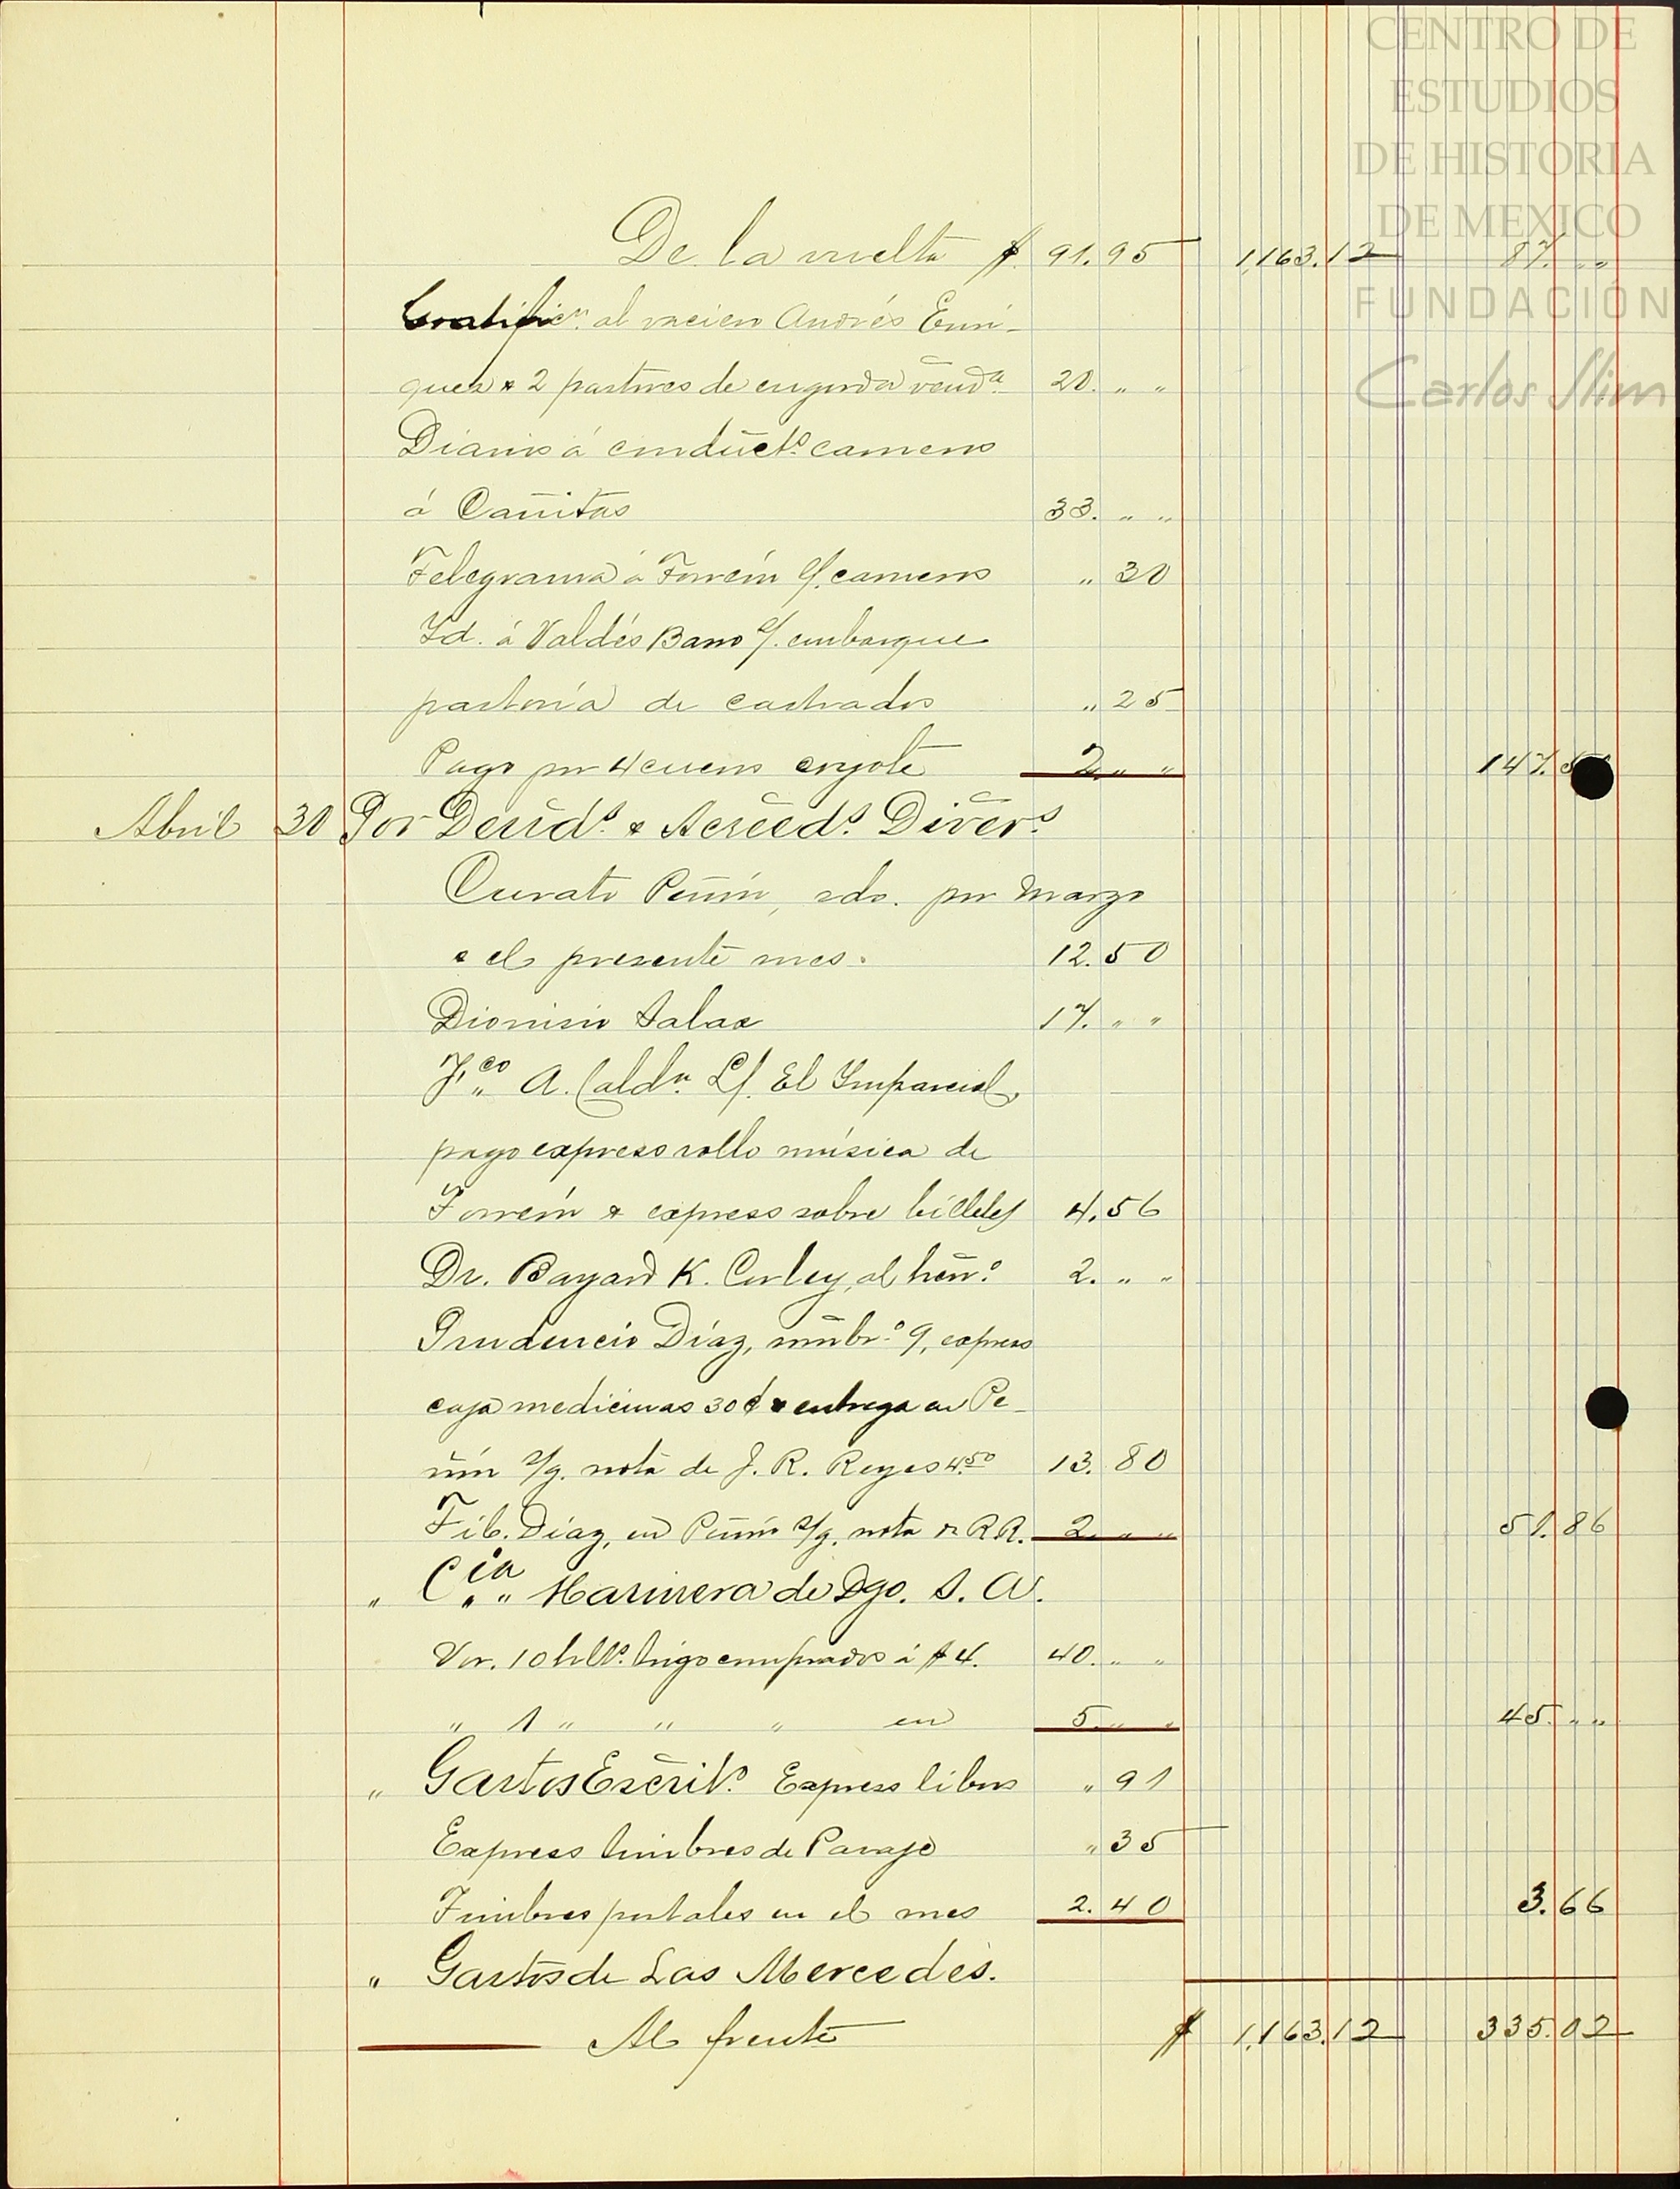 CENTRO DE
ESTUDIOS
DE HISTORIA
DE MEXICO
FUNDACIÓN
Carlos Slim
De la vuelta $ 91.95 1,163.12 87. „ „
Gratific.n al vaciero Andrés Enri-
quez & 2 pastores de engorda vend.a 20. „ „
Diarios á conduct.s carneros
á Cañitas 33. „ „
Telegrama á Torreón s/. carneros „ 30
Id. á Valdés Bano s/. embarque
pastoría de castrados „ 25
Pago por 4 cueros coyote 2 „ „ 147.
Abril 30 Por Deud.s & Acreed.s Divers.
Curato Peñón, sdo. por Marzo
& el presente mes. 12.50
Dionisio Salas 17. „ „
F.co A. Cald.n Sf. El Imparcial,
pago expreso rollo música de
Torreón & express sobre billetes 4.56
Dr. Bayard K. Corley, al hon.o 2. „ „
Prudencio Díaz, nmbr.o 9, expreso
caja medicinas 30¢ & entrega en Pe-
ñón s/g. nota de J. R. Reyes 4.50 13.80
Tib. Díaz, en Peñón s/g. nota R. R. 2. „ „ 51.86
„ C.ia Harinera de Dgo. S. A.
Vor. 10 hlls. trigo comprados á $4. 40. „ „
„ 1 „ „ „ en 5. „ „ 45. „ „
„ Gastos Escrit.o Express libros „ 91
Express timbres de Pasaje „ 35
Timbres postales en el mes 2.40 3.66
„ Gastos de Las Mercedes.
Al frente $ 1,163.12 335.02